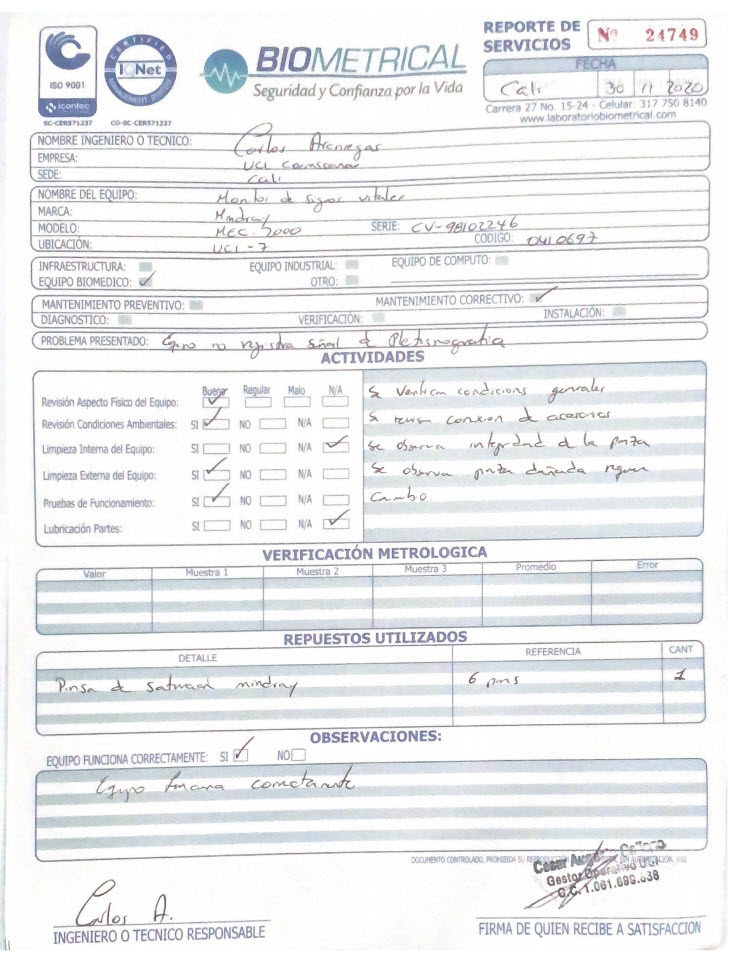 ISO 9001
icontec
SC-CER571237
CERTIFIED
IQNet
MANAGEMENT SYSTEM
CO-SC-CER571237
BIOMETRICAL
Seguridad y Confianza por la Vida
REPORTE DE SERVICIOS Nº 24749
FECHA
Cali 30 11 2020
Carrera 27 No. 15-24 - Celular: 317 750 8140
www.laboratoriobiometrical.com
NOMBRE INGENIERO O TECNICO: Carlos
EMPRESA: UCI
SEDE: Cali
NOMBRE DEL EQUIPO: Monitor de signos vitales
MARCA: Mindray
MODELO: MEC-2000 SERIE: CV-98102246
UBICACIÓN: UCI-7 CODIGO: 0410697
INFRAESTRUCTURA: EQUIPO INDUSTRIAL: EQUIPO DE COMPUTO:
EQUIPO BIOMEDICO: ✓ OTRO:
MANTENIMIENTO PREVENTIVO: MANTENIMIENTO CORRECTIVO: ✓
DIAGNOSTICO: VERIFICACIÓN: INSTALACIÓN:
PROBLEMA PRESENTADO: Equipo no registra señal de Pletismografia
ACTIVIDADES
Bueno Regular Malo N/A
Revisión Aspecto Físico del Equipo: ✓
Revisión Condiciones Ambientales: SI ✓ NO N/A
Limpieza Interna del Equipo: SI NO N/A ✓
Limpieza Externa del Equipo: SI ✓ NO N/A
Pruebas de Funcionamiento: SI ✓ NO N/A
Lubricación Partes: SI NO N/A ✓
Se verifican condiciones generales
Se revisa conexion de accesorios
Se observa integridad de la pinza
Se observa pinza dañada requiere
cambio
VERIFICACIÓN METROLOGICA
Valor Muestra 1 Muestra 2 Muestra 3 Promedio Error
REPUESTOS UTILIZADOS
DETALLE REFERENCIA CANT
Pinsa de mindray 6 pins 1
OBSERVACIONES:
EQUIPO FUNCIONA CORRECTAMENTE: SI ✓ NO
Equipo funciona correctamente
DOCUMENTO CONTROLADO, PROHIBIDA SU
Cesar
Gestor Operativo UCI
C.C. 1.061.699.638
Carlos A.
INGENIERO O TECNICO RESPONSABLE
FIRMA DE QUIEN RECIBE A SATISFACCION